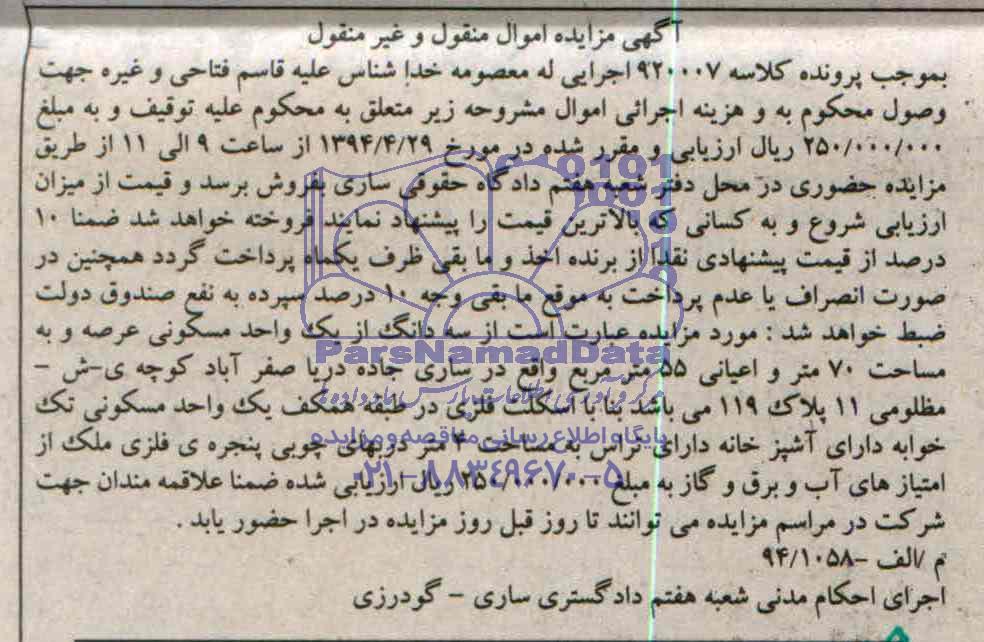 آگهی مزایده اموال منقول و غیر منقول
بموجب پرونده کلاسه ۹۲۰۰۰۷ اجرایی له معصومه خدا شناس علیه قاسم فتاحی و غیره جهت
وصول محکوم به و هزینه اجرائی اموال مشروحه زیر متعلق به محکوم علیه توقیف و به مبلغ
۲۵۰/۰۰۰/۰۰۰ ریال ارزیابی و مقرر شده در مورخ ۱۳۹۴/۴/۲۹ از ساعت ۹ الی ۱۱ از طریق
مزایده حضوری در محل دفتر شعبه هفتم دادگاه حقوقی ساری بفروش برسد و قیمت از میزان
ارزیابی شروع و به کسانی که بالاترین قیمت را پیشنهاد نمایند فروخته خواهد شد ضمنا ۱۰
درصد از قیمت پیشنهادی نقدا از برنده اخذ و ما بقی ظرف یکماه پرداخت گردد همچنین در
صورت انصراف یا عدم پرداخت به موقع ما بقی وجه ۱۰ درصد سپرده به نفع صندوق دولت
ضبط خواهد شد : مورد مزایده عبارت است از سه دانگ از یک واحد مسکونی عرصه و به
مساحت ۷۰ متر و اعیانی ۵۵ متر مربع واقع در ساری جاده دریا صفر آباد کوچه ی-ش -
مظلومی ۱۱ پلاک ۱۱۹ می باشد بنا با اسکلت فلزی در طبقه همکف یک واحد مسکونی تک
خوابه دارای آشپز خانه دارای تراس به مساحت ۴ متر دوبهای چوبی پنجره ی فلزی ملک از
امتیاز های آب و برق و گاز به مبلغ ۲۵۰/۰۰۰/۰۰۰ ریال ارزیابی شده ضمنا علاقمه مندان جهت
شرکت در مراسم مزایده می توانند تا روز قبل روز مزایده در اجرا حضور یابد .
م /الف -۹۴/۱۰۵۸
اجرای احکام مدنی شعبه هفتم دادگستری ساری - گودرزی
ParsNamadData
مرکز فرآوری اطلاعات پارس نماد داده ها
پایگاه اطلاع رسانی مناقصه و مزایده
۰۲۱-۸۸۳۴۹۶۷۰-۵